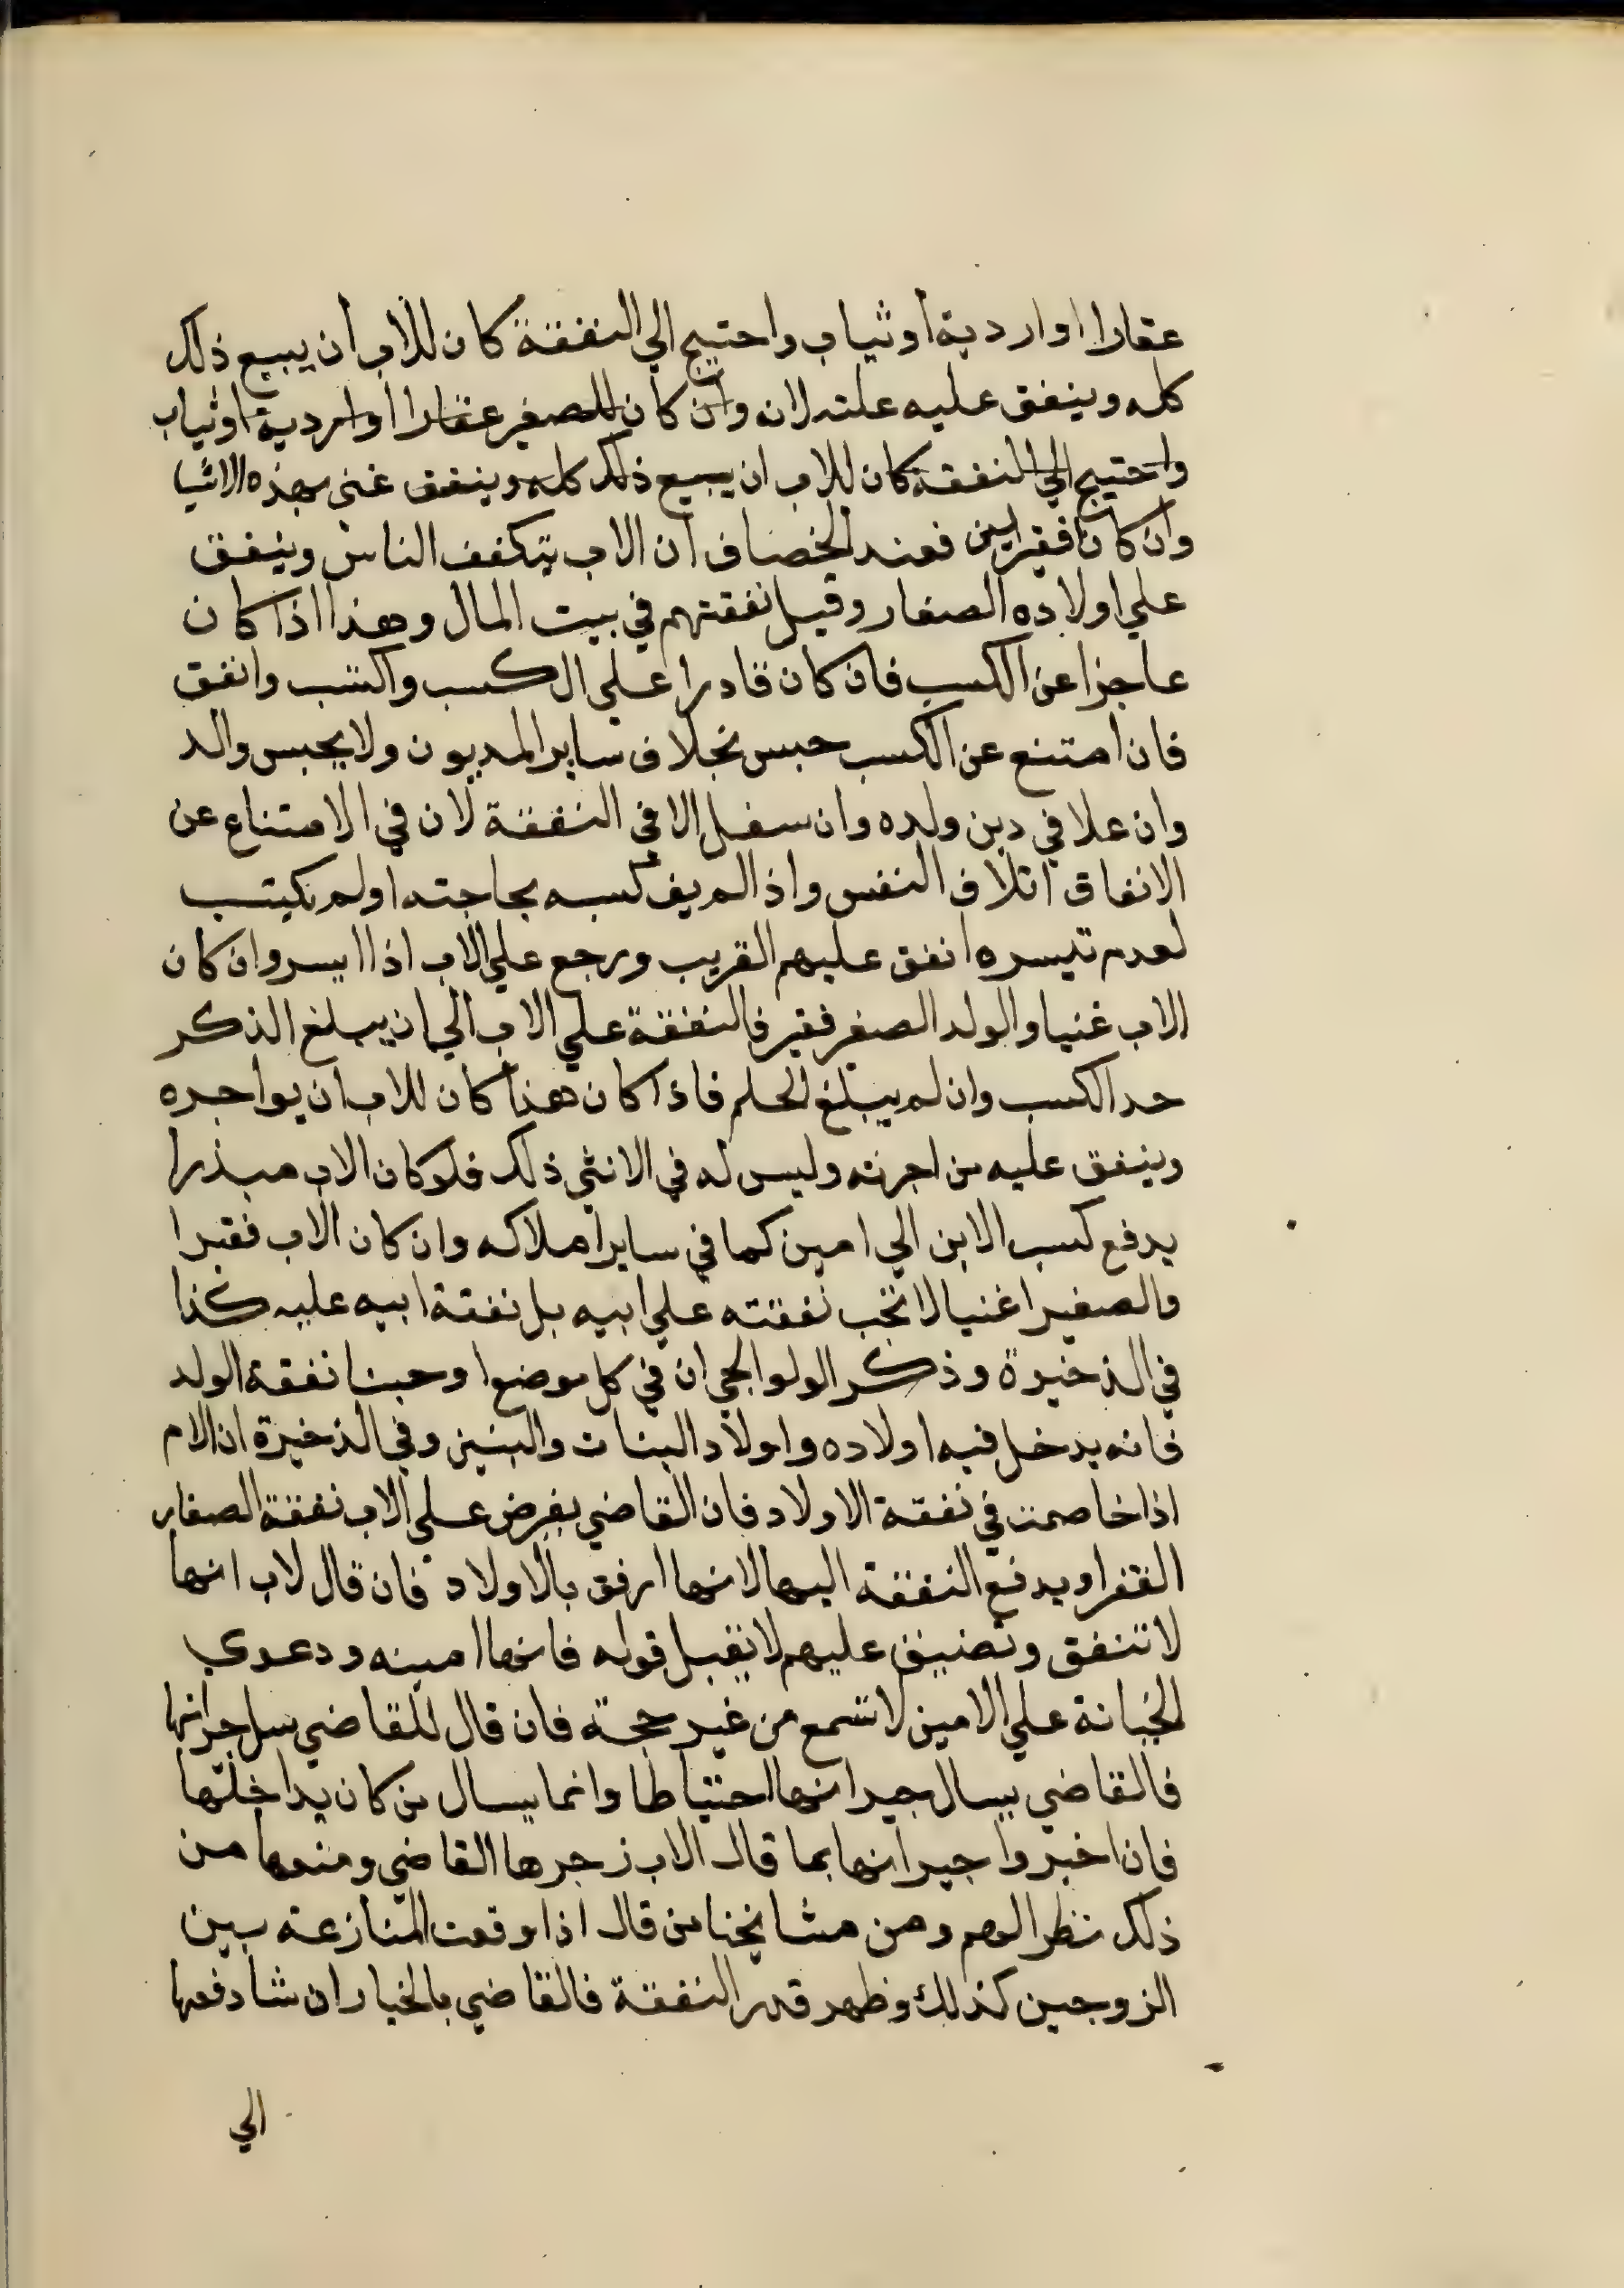 عقارا اواردية أوثياب واحتيج الي النفقة كان للاب أن يبيع ذلك
كله وينفق عليه علته لانه وان كان للصغير عقارا اواردية اوثياب
واحتيج الي النفقة كان للاب ان يبيع ذلك كله وينفق غني بهذه الاشيا
وان كانا فقيرين فعند الخصاف ان الاب يتكفف الناس وينفق
علي اولاده الصغار وقيل نفقتهم في بيت المال وهذا اذا كان
عاجزا عن الكسب فان كان قادرا علي الكسب واكتسب وانفق
فان امتنع عن الكسب حبس بخلاف ساير المديون ولا يحبس والد
وان علا في دين ولده وان سفل الا في النفقة لان في الامتناع عن
الانفاق اتلاف النفس واذا لم يف كسبه بحاجته اولم يكتسب
لعدم تيسره انفق عليهم القريب ورجع علي الاب اذا ايسر وان كان
الاب غنيا والولد الصغير فقير فالنفقة علي الاب الي ان يبلغ الذكر
حد الكسب وان لم يبلغ الحلم فاذا كان هذا كان للاب ان يواجره
وينفق عليه من اجرته وليس له في الانثي ذلك فلو كان الاب مبذرا
يدفع كسب الابن الي امين كما في ساير املاكه وان كان الاب فقيرا
والصغير اغنيا لا تجب نفقته علي ابيه بل نفقة ابيه عليه كذا
في الذخيرة وذكر الولوالجي ان في كل موضع اوجبنا نفقة الولد
فانه يدخل فيه اولاده واولاد البنات والبنين وفي الذخيرة ان الام
اذا خاصمت في نفقة الاولاد فان القاضي يفرض علي الاب نفقة الصغار
الفقرا ويدفع النفقة اليها لانها ارفق بالاولاد فان قال لاب انها
لا تنفق وتضيق عليهم لا يقبل قوله فانها امينه ودعوي
الخيانة علي الامين لا تسمع من غير حجة فان قال للقاضي سل جيرانها
فالقاضي يسال جيرانها احتياطا وانما يسال من كان يداخلها
فان اخبروا جيرانها بما قال الاب زجرها القاضي ومنعها من
ذلك نظرا لهم ومن مشايخنا من قال اذا وقعت المنازعة بين
الزوجين كذلك وظهر قدر النفقة فالقاضي بالخيار ان شا دفعها
الي